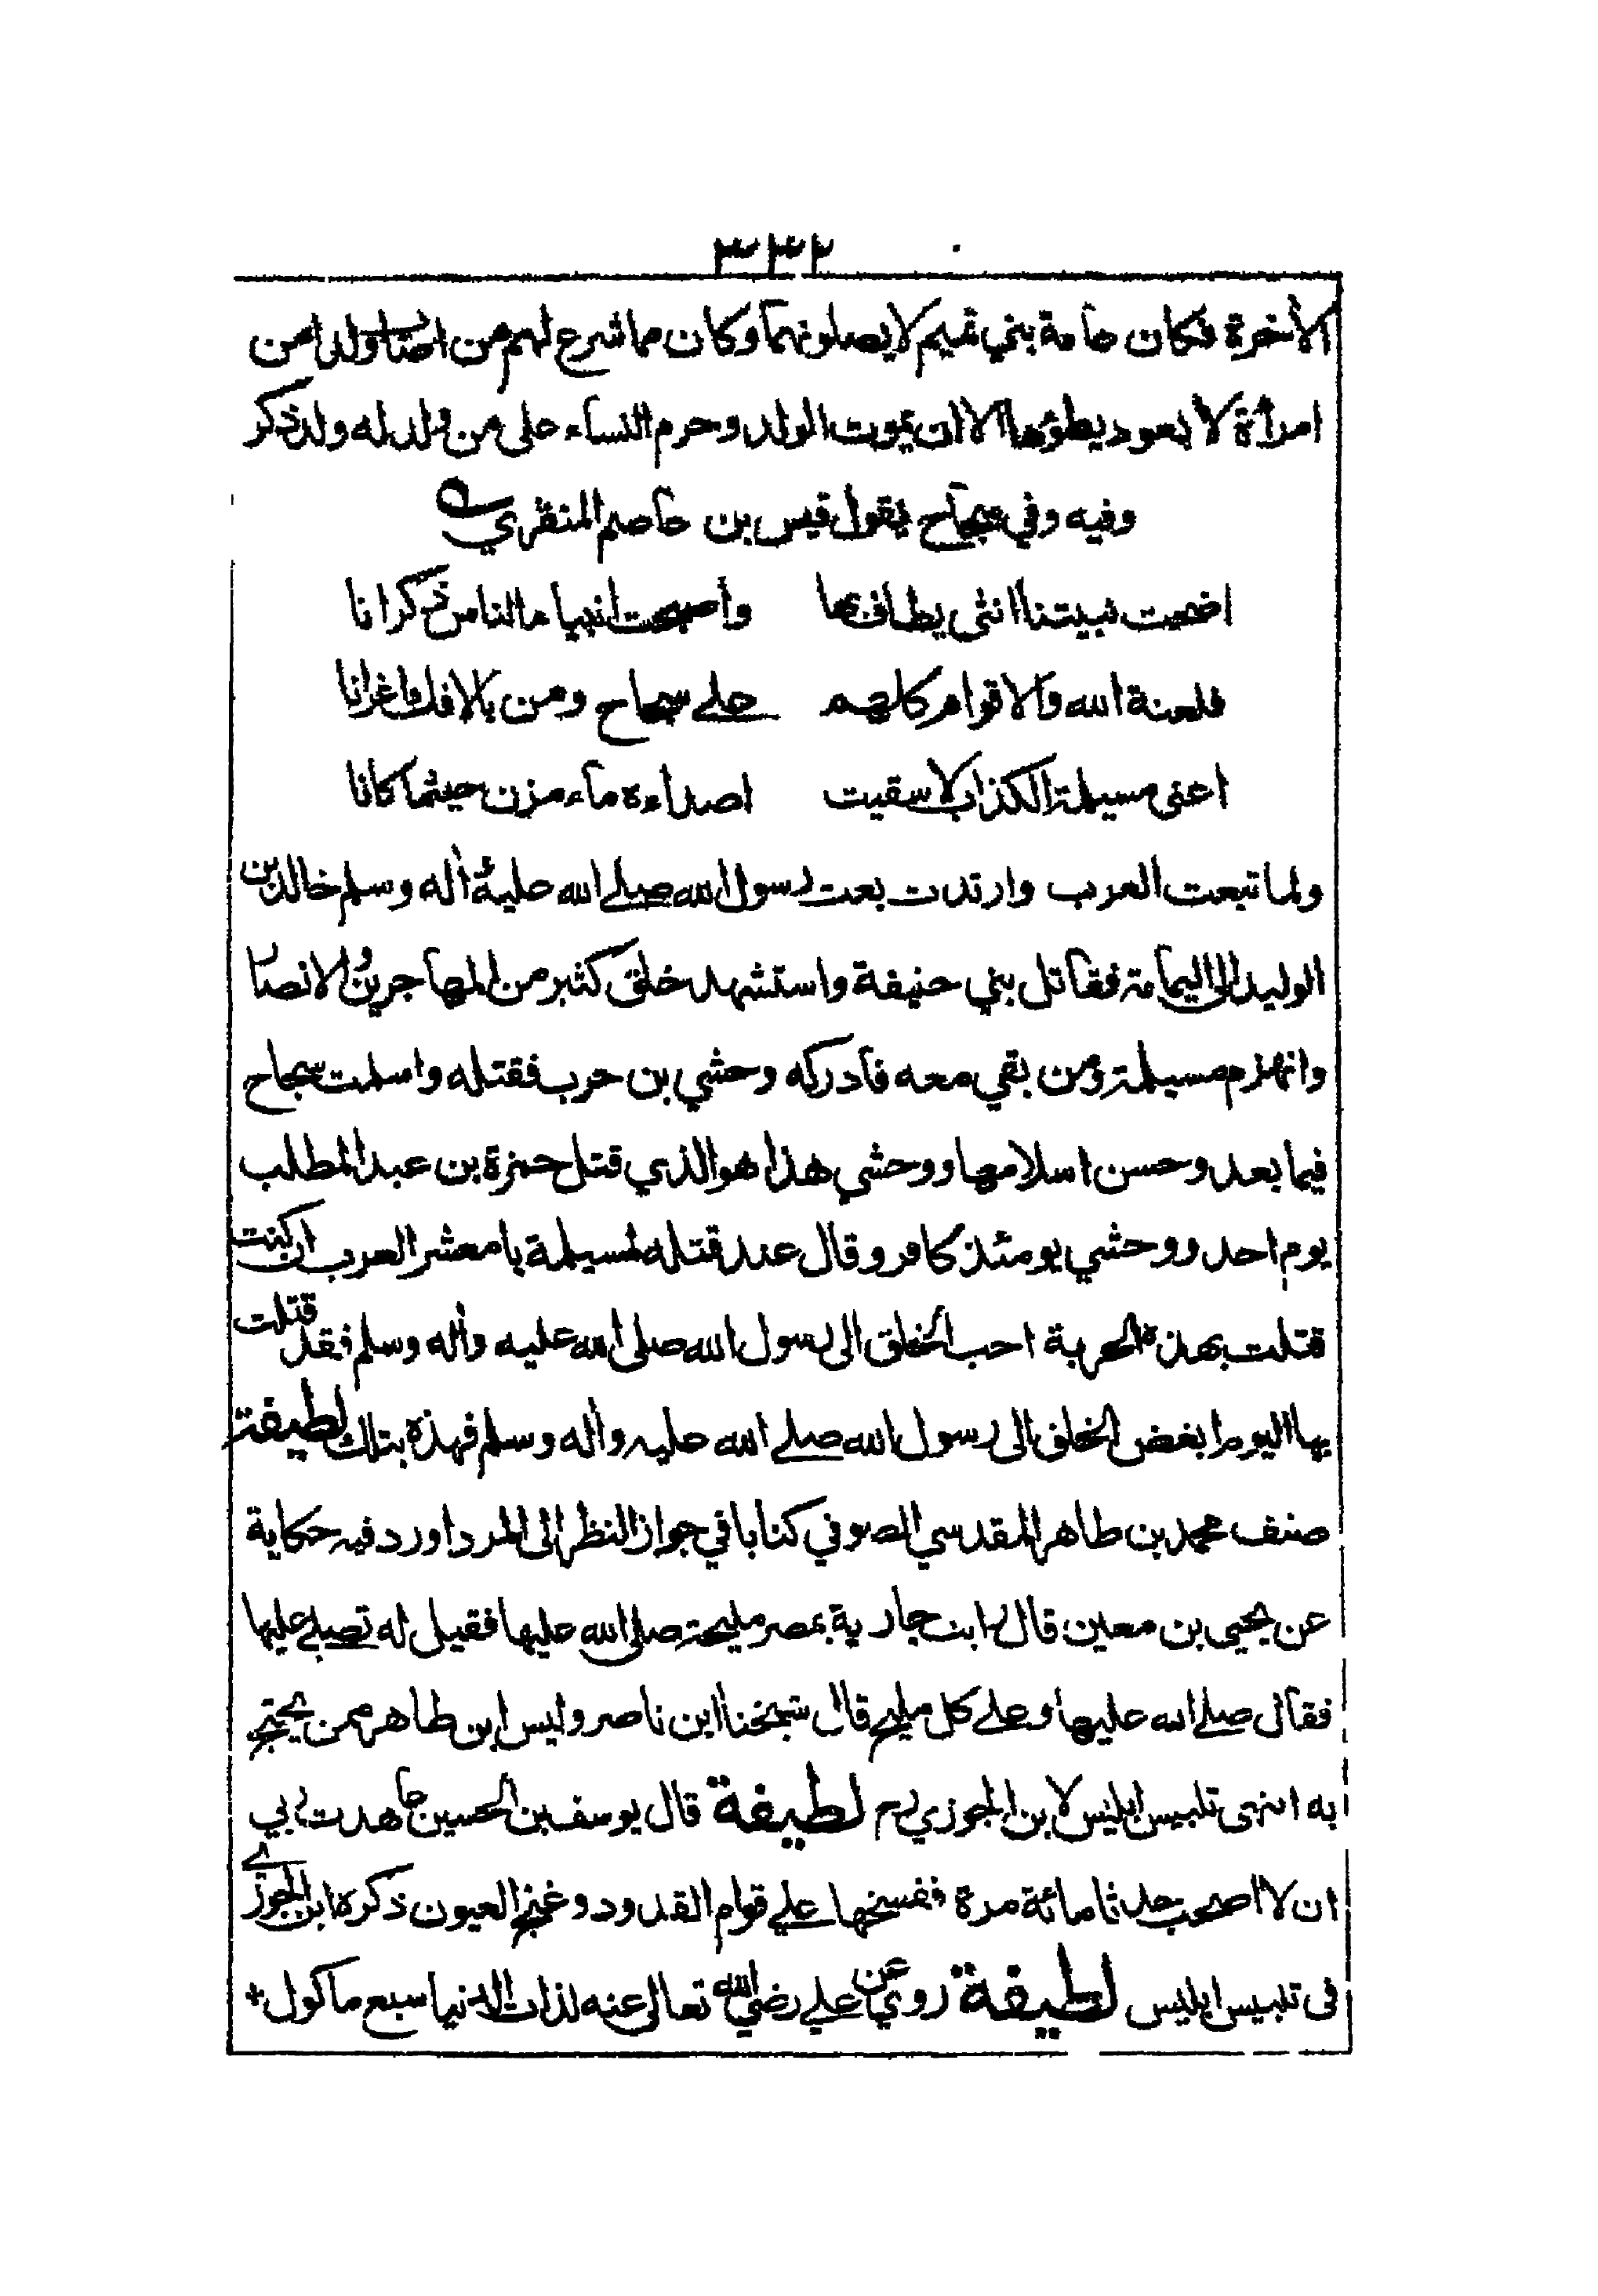 ٣٣٢
الأخرة فكان عامة بني تميم لا يصلونهما وكان مما شرع لهم من اصاب ولدا من
امرأة لا يعود يطؤها الا ان يموت الولد وحرم النساء على من ولد له ولد ذكر
وفيه وفي سجاح يقول قيس بن عاصم المنقري
اضحت نبيتنا انثى يطاف بها وأصبحت انبياء الناس ذكرانا
فلعنة الله والاقوام كلهم على سجاح ومن بالافك اغرانا
اعنى مسيلمة الكذاب لا سقيت اصداءه ماء مزن حيثما كانا
ولما تبعت العرب وارتدت بعث رسول الله صلى الله عليه وأله وسلم خالد بن
الوليد الى اليمامة فقاتل بني حنيفة واستشهد خلق كثير من المهاجرين والانصار
وانهزم مسيلمة ومن بقي معه فأدركه وحشي بن حرب فقتله واسلمت سجاح
فيما بعد وحسن اسلامها ووحشي هذا هو الذي قتل حمزة بن عبد المطلب
يوم احد ووحشي يومئذ كافر وقال عند قتله لمسيلمة يا معشر العرب ان كنت
قتلت بهذه الحربة احب الخلق الى رسول الله صلى الله عليه وأله وسلم فقد قتلت
بها اليوم ابغض الخلق الى رسول الله صلى الله عليه وأله وسلم فهذه بتلك لطيفة
صنف محمد بن طاهر المقدسي الصوفي كتابا في جواز النظر الى المرد اورد فيه حكاية
عن يحيى بن معين قال رايت جارية بمصر مليحة صلى الله عليها فقيل له تصلي عليها
فقال صلى الله عليها وعلى كل مليح قال شيخنا ابن ناصر وليس ابن طاهر ممن يحتج
به انتهى تلبيس ابليس لابن الجوزي رح لطيفة قال يوسف بن الحسين عاهدت ربي
ان لا اصحب حدثا مائة مرة ففسخها علي قوام القدود وغنج العيون ذكره ابن الجوزي
فى تلبيس ابليس لطيفة روي عن علي رضي الله تعالى عنه لذات الدنيا سبع ماكول +